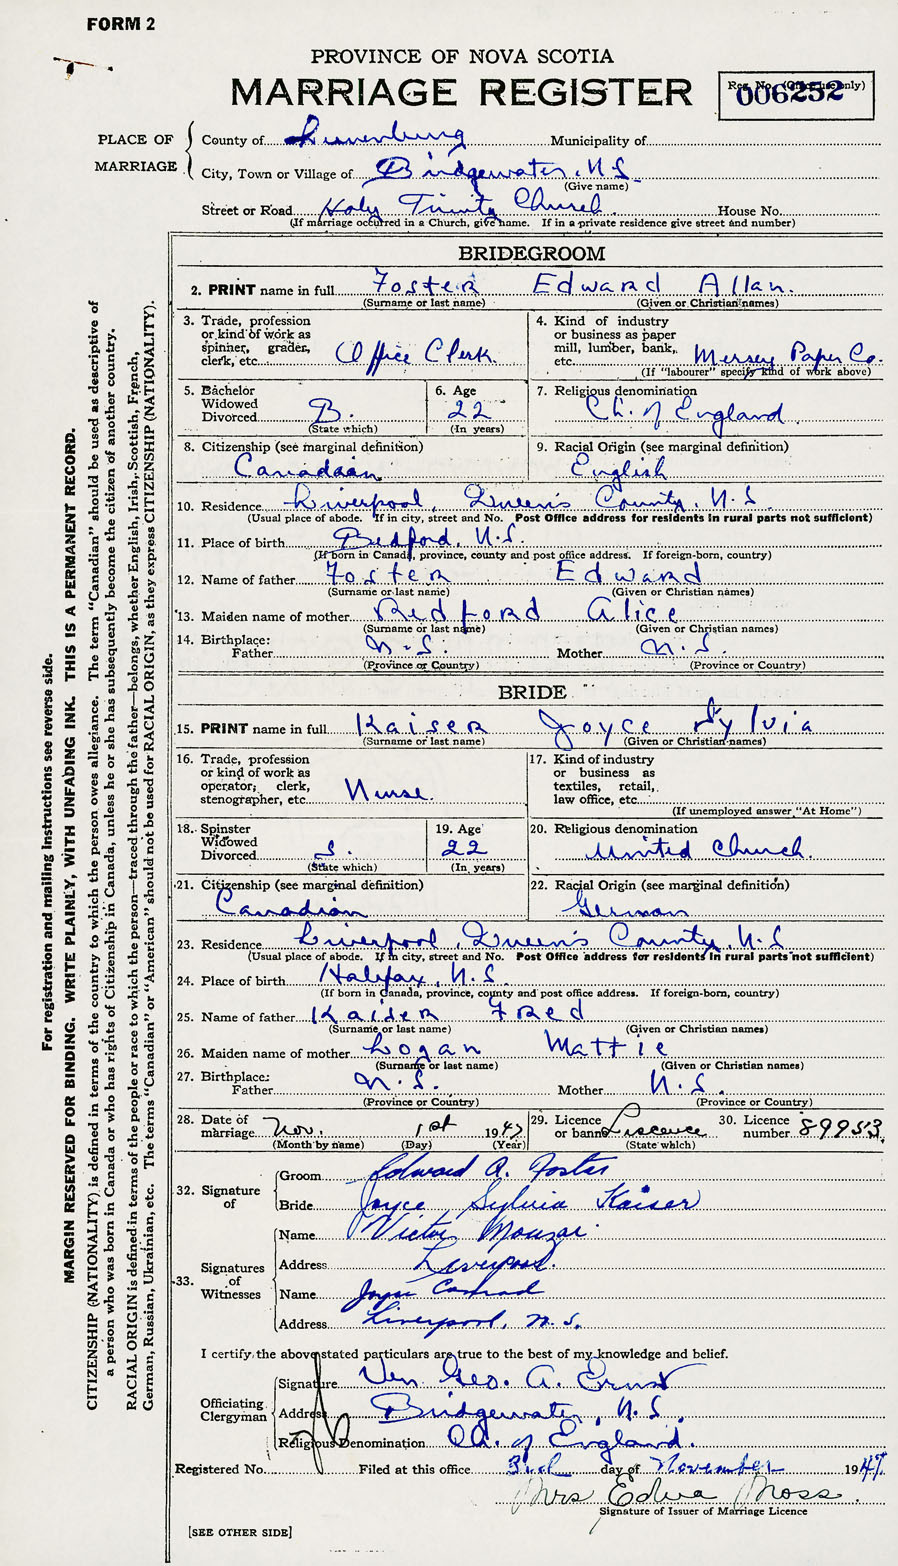 FORM 2
PROVINCE OF NOVA SCOTIA
MARRIAGE REGISTER
Reg. No. (Office use only)
006252
PLACE OF MARRIAGE
County of Lunenburg Municipality of
City, Town or Village of Bridgewater, N.S.
(Give name)
Street or Road Holy Trinity Church House No.
(If marriage occurred in a Church, give name. If in a private residence give street and number)
BRIDEGROOM
2. PRINT name in full Foster Edward Allan.
(Surname or last name) (Given or Christian names)
3. Trade, profession or kind of work as spinner, grader, clerk, etc. Office Clerk
4. Kind of industry or business as paper mill, lumber, bank, etc. Mersey Paper Co.
(If "labourer" specify kind of work above)
5. Bachelor Widowed Divorced B.
(State which)
6. Age 22
(In years)
7. Religious denomination Ch. of England
8. Citizenship (see marginal definition)
Canadian
9. Racial Origin (see marginal definition)
English
10. Residence Liverpool, Queen's County, N.S.
(Usual place of abode. If in city, street and No. Post Office address for residents in rural parts not sufficient)
11. Place of birth Bedford, N.S.
(If born in Canada, province, county and post office address. If foreign-born, country)
12. Name of father Foster Edward
(Surname or last name) (Given or Christian names)
13. Maiden name of mother Redford Alice
(Surname or last name) (Given or Christian names)
14. Birthplace:
Father N.S. Mother N.S.
(Province or Country) (Province or Country)
BRIDE
15. PRINT name in full Kaiser Joyce Sylvia
(Surname or last name) (Given or Christian names)
16. Trade, profession or kind of work as operator, clerk, stenographer, etc. Nurse.
17. Kind of industry or business as textiles, retail, law office, etc.
(If unemployed answer "At Home")
18. Spinster Widowed Divorced S.
(State which)
19. Age 22
(In years)
20. Religious denomination
United Church.
21. Citizenship (see marginal definition)
Canadian
22. Racial Origin (see marginal definition)
German
23. Residence Liverpool, Queen's County, N.S
(Usual place of abode. If in city, street and No. Post Office address for residents in rural parts not sufficient)
24. Place of birth Halifax, N.S.
(If born in Canada, province, county and post office address. If foreign-born, country)
25. Name of father Kaiser Fred
(Surname or last name) (Given or Christian names)
26. Maiden name of mother Logan Mattie
(Surname or last name) (Given or Christian names)
27. Birthplace:
Father N.S. Mother N.S.
(Province or Country) (Province or Country)
28. Date of marriage Nov. 1st 1947
(Month by name) (Day) (Year)
29. Licence or banns Liscence
(State which)
30. Licence number 89953
32. Signature of
Groom Edward A. Foster
Bride Joyce Sylvia Kaiser
33. Signatures of Witnesses
Name Victor
Address Liverpool.
Name Joyce Conrad
Address Liverpool, N.S.
I certify the above stated particulars are true to the best of my knowledge and belief.
Officiating Clergyman
Signature Ven. Geo. A. Ernst
Address Bridgewater, N.S.
Religious Denomination Ch. of England.
Registered No. Filed at this office 3rd day of November 1947
Mrs Edna Moss.
Signature of Issuer of Marriage Licence
[SEE OTHER SIDE]
For registration and mailing instructions see reverse side.
MARGIN RESERVED FOR BINDING. WRITE PLAINLY, WITH UNFADING INK. THIS IS A PERMANENT RECORD.
CITIZENSHIP (NATIONALITY) is defined in terms of the country to which the person owes allegiance. The term "Canadian" should be used as descriptive of
a person who was born in Canada or who has rights of Citizenship in Canada, unless he or she has subsequently become the citizen of another country.
RACIAL ORIGIN is defined in terms of the people or race to which the person—traced through the father—belongs, whether English, Irish, Scottish, French,
German, Russian, Ukrainian, etc. The terms "Canadian" or "American" should not be used for RACIAL ORIGIN, as they express CITIZENSHIP (NATIONALITY).